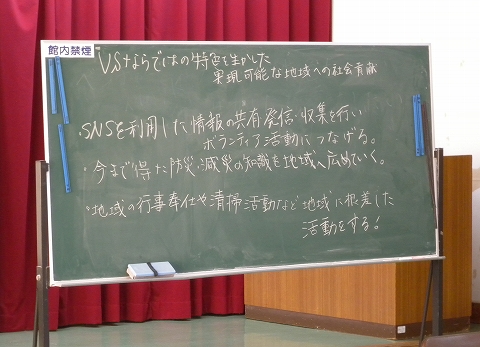 館内禁煙
VSならではの特色を生かした
実現可能な地域への社会貢献
・SNSを利用した情報の共有発信・収集を行い
ボランティア活動につなげる。
・今まで得た防災・減災の知識を地域へ広めていく。
・地域の行事奉仕や清掃活動など地域に根差した
活動をする!